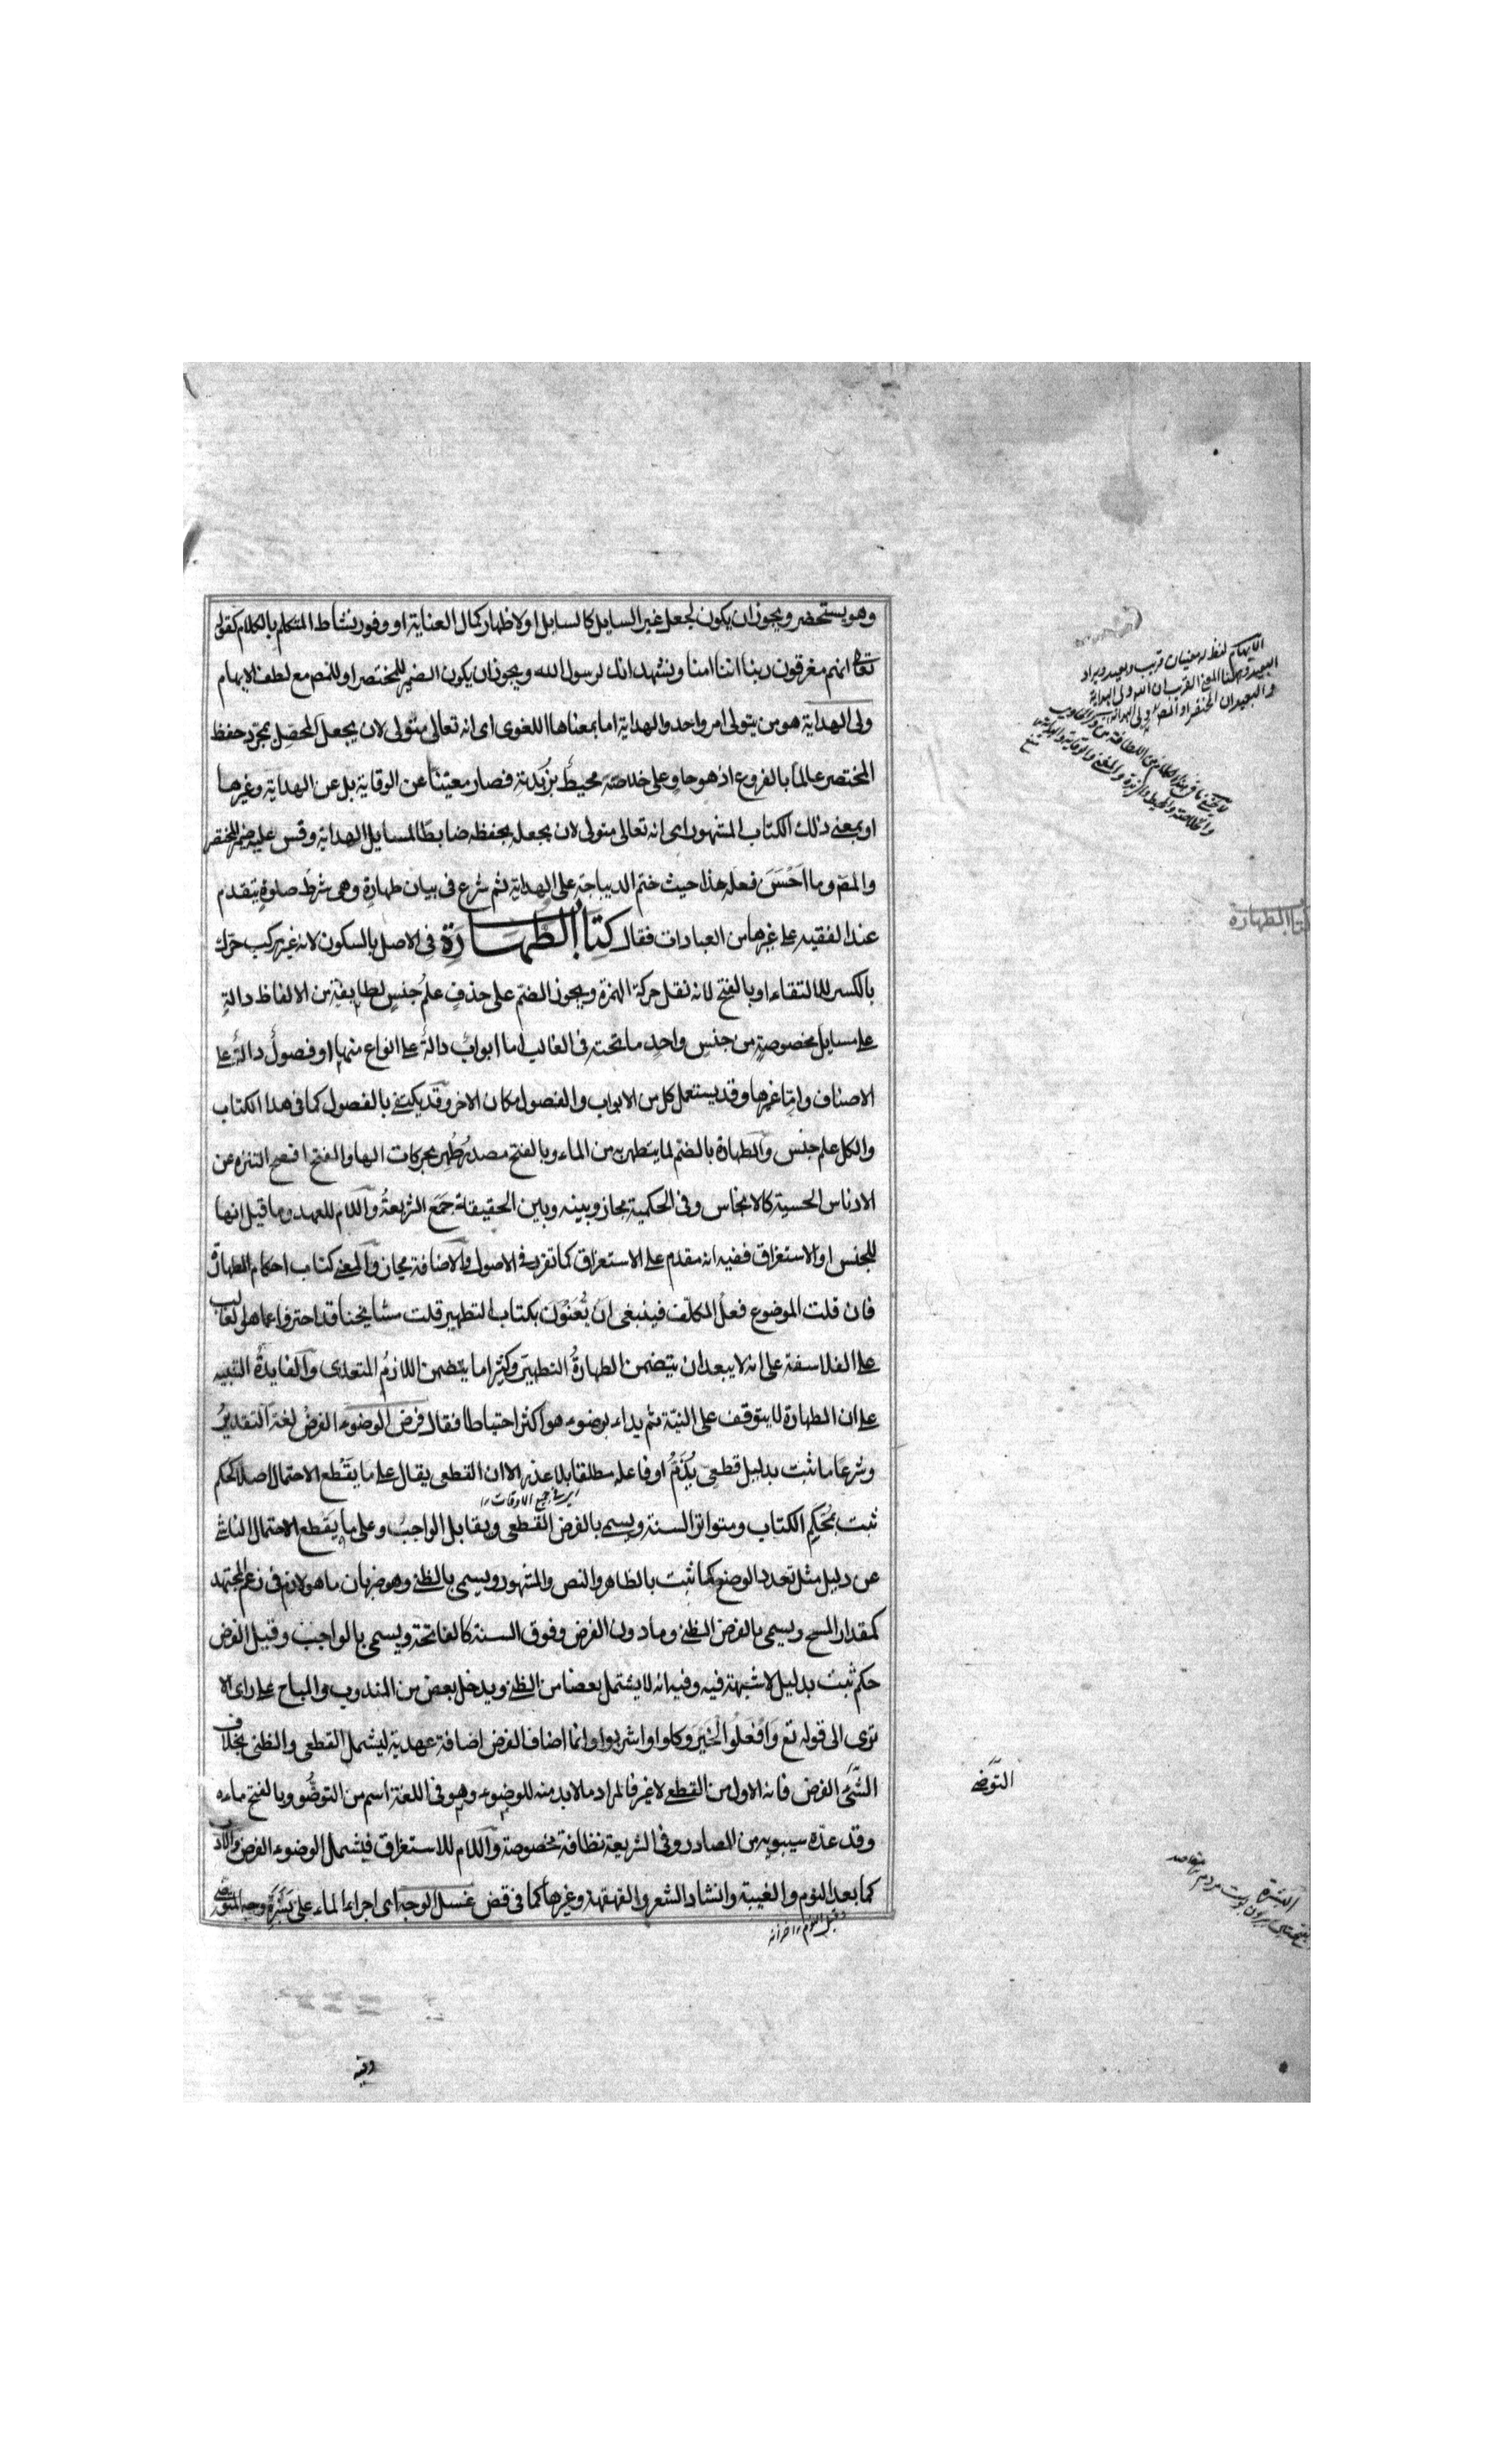 وهو يستحضر ويجوز ان يكون لجعل غير السايل كالسايل او لاظهار كمال العناية او وفور نشاط المتكلم بالكلام كقوله
تعالى انهم مغرقون ربنا اننا امنا ونشهد انك لرسول الله ويجوز ان يكون الضمير للمختصر او للمص مع لطف الايهام
ولى الهداية هو من يتولى امر واحد والهداية اما بمعناها اللغوى اى انه تعالى متولى لان يجعل المحصل بمجرد حفظ
المختصر عالما بالفروع اذ هو حاو على خلاصته محيط بزبدته فصار مغنيا عن الوقاية بل عن الهداية وغيرها
او بمعنى ذلك الكتاب المشهور اى انه تعالى متولى لان يجعله بحفظه ضابطا لمسايل الهداية وقس عليه ضمير المختصر
والمص وما احسن فعله هذا حيث ختم الديباجة على الهداية ثم شرع فى بيان طهارة وهى شرط صلوة يتقدم
عند الفقيه على غيرها من العبادات فقال كِتَابُ الطَّهَارَةِ فى الاصل بالسكون لانه غير مركب حرّك
بالكسر للالتقاء او بالفتح لانه نقل حركة الهمزة ويجوز الضم على حذف علم جنس لطايفة من الالفاظ دالة
على مسايل مخصوصة من جنس واحد ما تحته فى الغالب اما ابواب دالة على انواع منها او فصول دالة على
الاصناف واما غيرها وقد يستعمل كل من الابواب والفصول مكان الاخر وقد يكتفى بالفصول كما فى هذا الكتاب
والكل علم جنس والطهارة بالضم لما يتطهر به من الماء وبالفتح مصدر طهر بحركات الها والفتح افصح التنزه عن
الادناس الحسية كالانجاس وفى الحكمية مجاز وبينه وبين الحقيقة جمع الشريعة واللام للعهد وما قيل انها
للجنس او الاستغراق ففيه انه مقدم على الاستغراق كما تقرر فى الاصول والاضافة مجاز والمعنى كتاب احكام الطهارة
فان قلت الموضوع فعل المكلف فينبغى ان يُعَنْوَن بكتاب التطهير قلت مشايخنا قد احترزوا عما هو الغالب
على الفلاسفة على انه لا يبعد ان يتضمن الطهارة التطهير وكثيرا ما يتضمن اللازم المتعدى والفايدة التنبيه
على ان الطهارة لا يتوقف على النية ثم بداء بوضوء هو اكثر احتياطا فقال فرض الوضوء الفرض لغة التقدير
وشرعا ما ثبت بدليل قطعى يُذَمّ او فاعله مطلقا بلا عذر الا ان القطعى يقال على ما يقطع الاحتمال اصلا كحكم
اى فى جميع الاوقات
ثبت بمحكم الكتاب ومتواتر السنة ويسمى بالفرض القطعى ويقابل الواجب وعلى ما يقطع الاحتمال الناشى
عن دليل مثل تعدد الوضع كما ثبت بالظاهر والنص والمشهور ويسمى بالظنى وهو ضربان ما هو لازم فى زعم المجتهد
كمقدار المسح ويسمى بالفرض الظنى وما دون الفرض وفوق السنة كالفاتحة ويسمى بالواجب وقيل الفرض
حكم ثبت بدليل لا شبهة فيه وفيه انه لا يشتمل بعضا من الظنى ويدخل بعض من المندوب والمباح على راى الا
ترى الى قوله تع وَافْعَلُوا الْخَيْرَ وكلوا واشربوا وانما اضاف الفرض اضافة عهدية ليشمل القطعى والظنى بخلاف
الشئ الفرض فانه الاول من القطعى لا غير فالمراد ما لابد منه للوضوء وهو فى اللغة اسم من التوضّو وبالفتح ماءه
وقد عدّه سيبويه من المصادر وفى الشريعة نظافة مخصوصة واللام للاستغراق فيشمل الوضوء الفرض
كما بعد النوم والغيبة وانشاد الشعر والقهقهة وغيرها كما فى قض غسل الوجه اى اجراء الماء على بَشَرَة وجه المتوضى
وقبل النوم
الايهام لفظ له معنيان قريب وبعيد ويراد
البعيد وههنا المعنى القريب ان الله ولى الهداية
والبعيد ان المختصر او المص ولى الهداية
كتاب الطهارة
التوضى
البشرة
وفيه